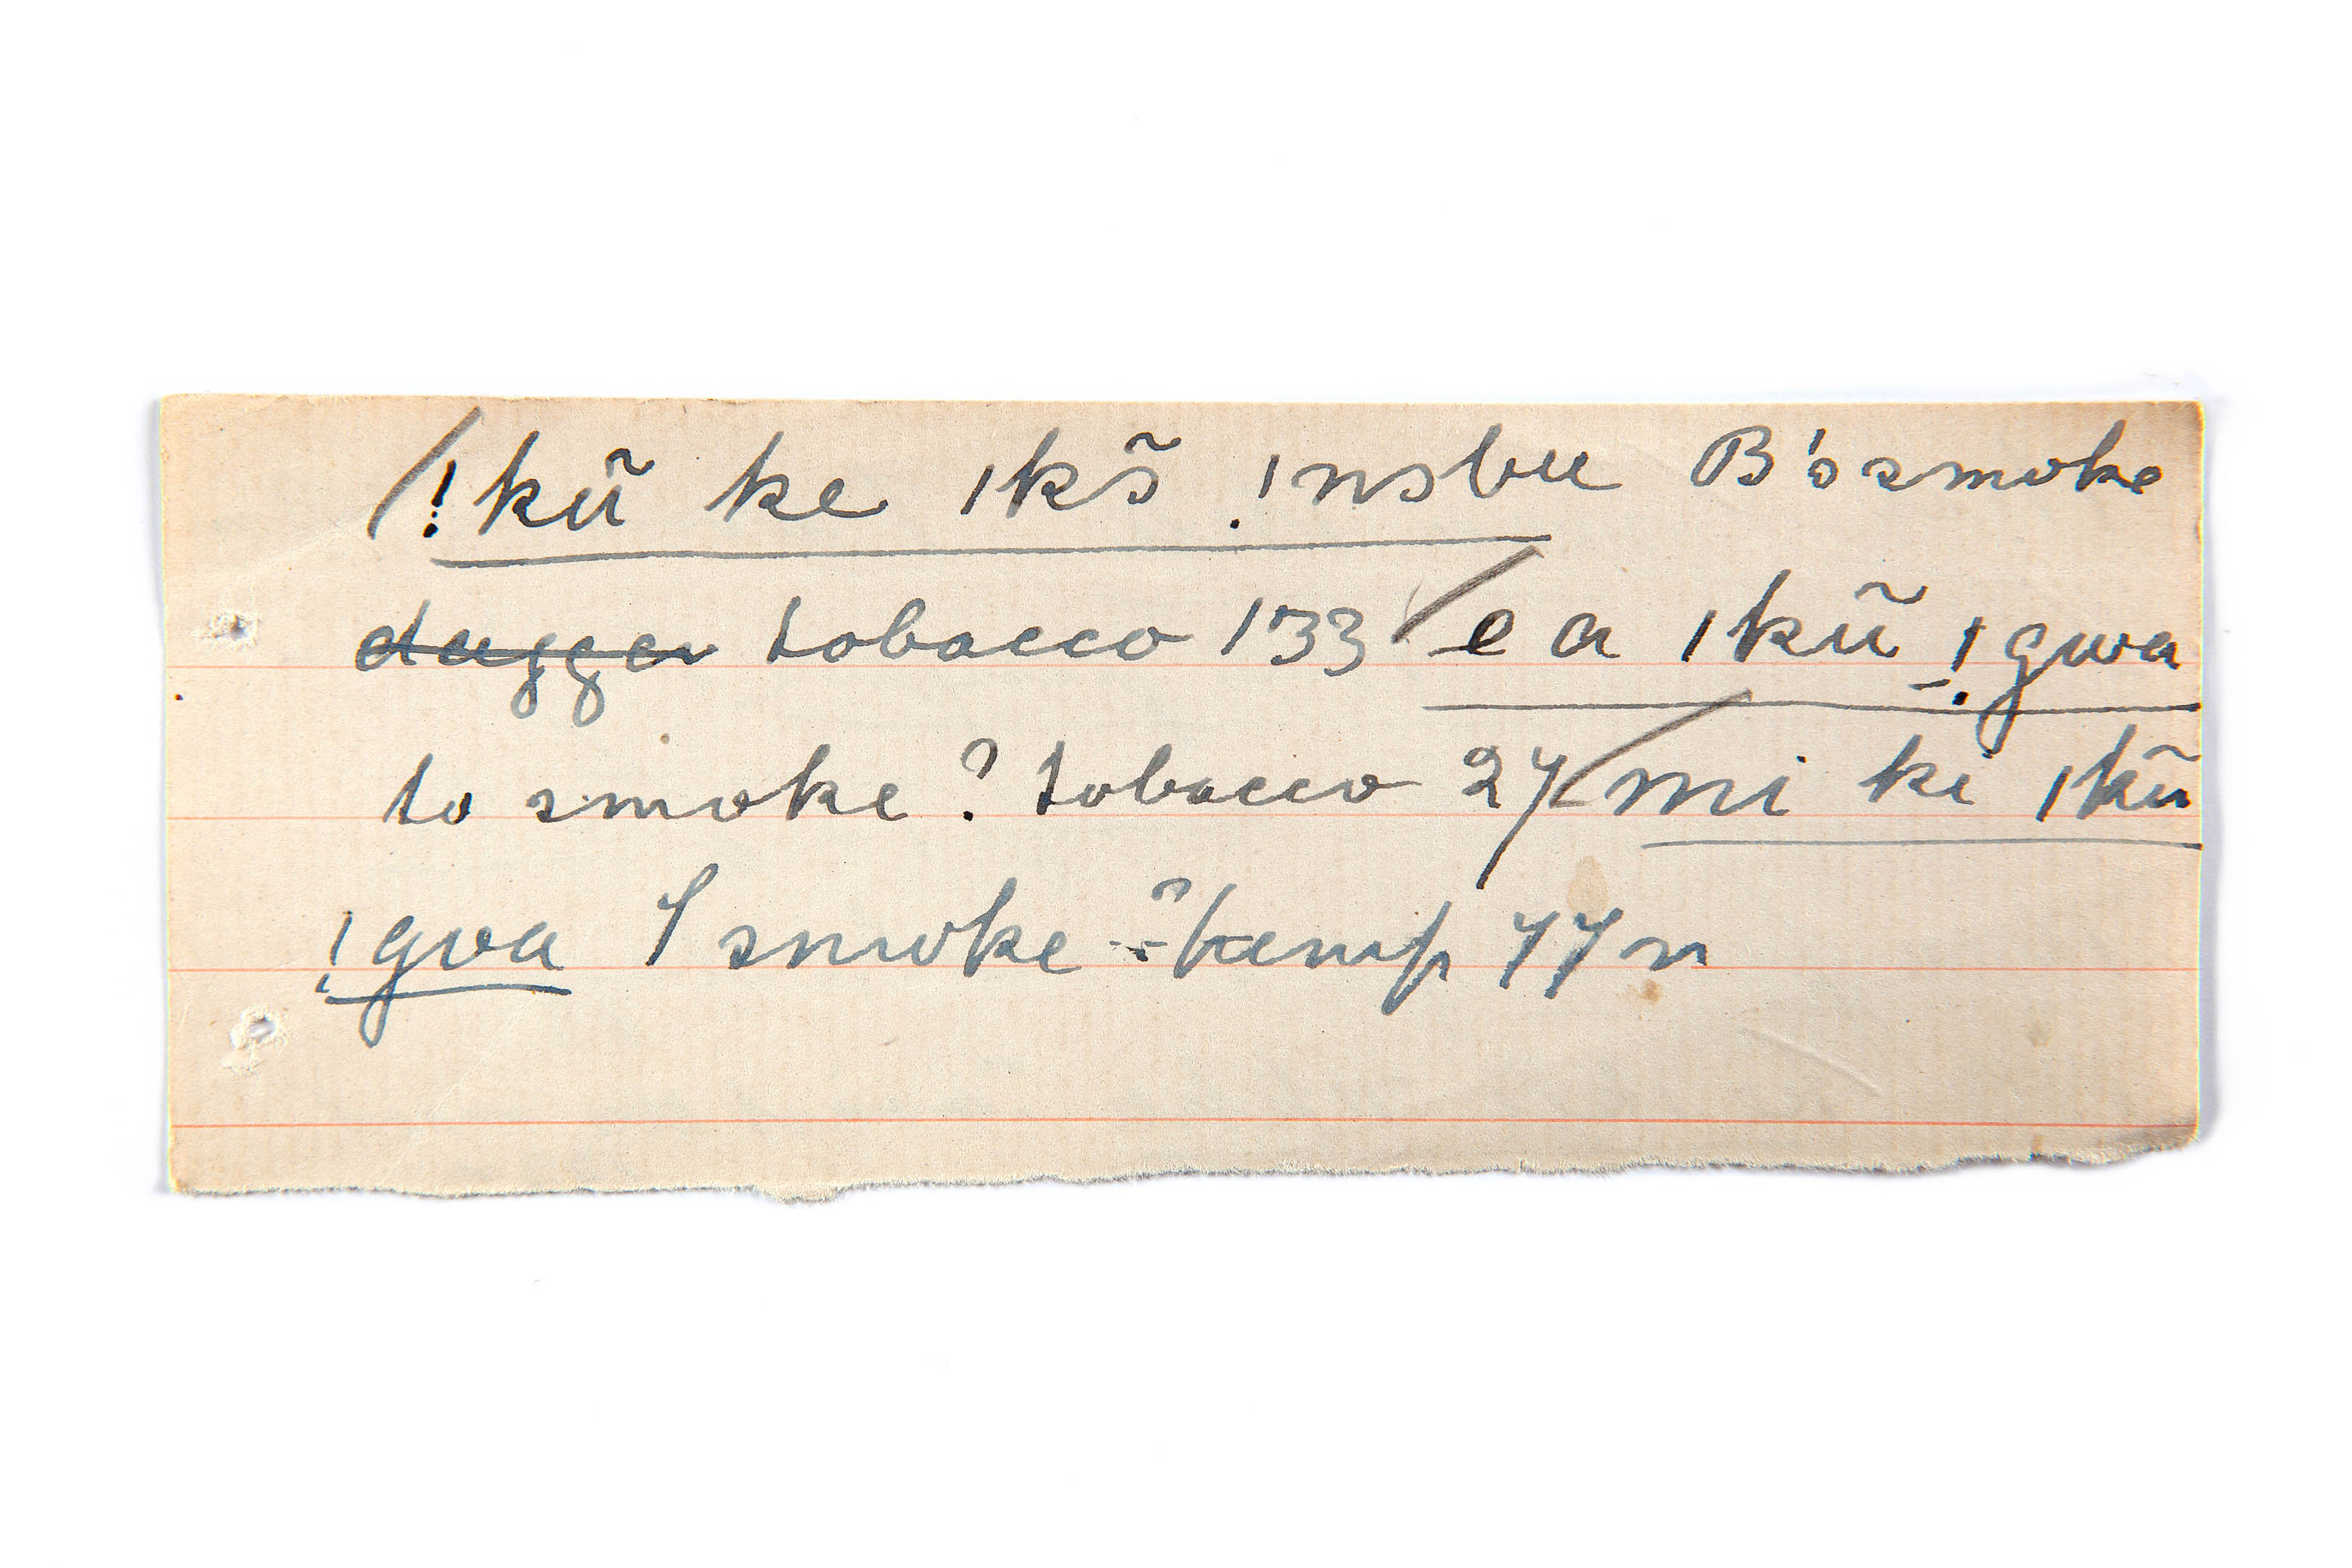 !kũ ke ıkõ !nsbu B's smoke
dagga tobacco 133 / e a ıkũ !gwa
to smoke ? tobacco 27 / mi ki ıkũ
!gwa I smoke ? hemp 77 n